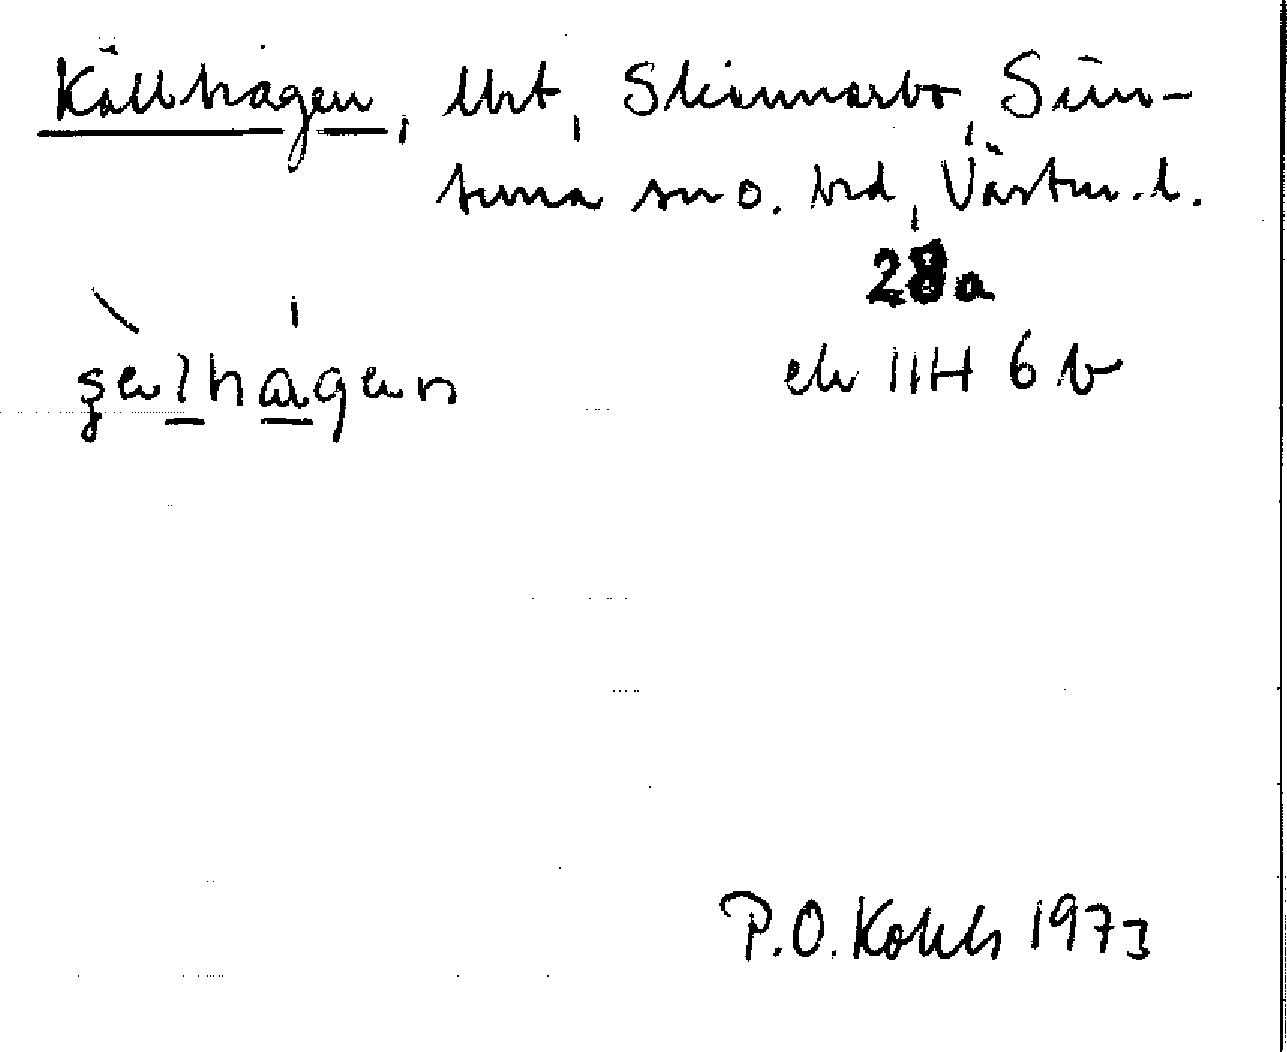 Källhagen, lht, Skinnarbo, Simtuna sn o. hd, Västm. l.
28a
ek 11H 6 b
P.O. Kohls 1973